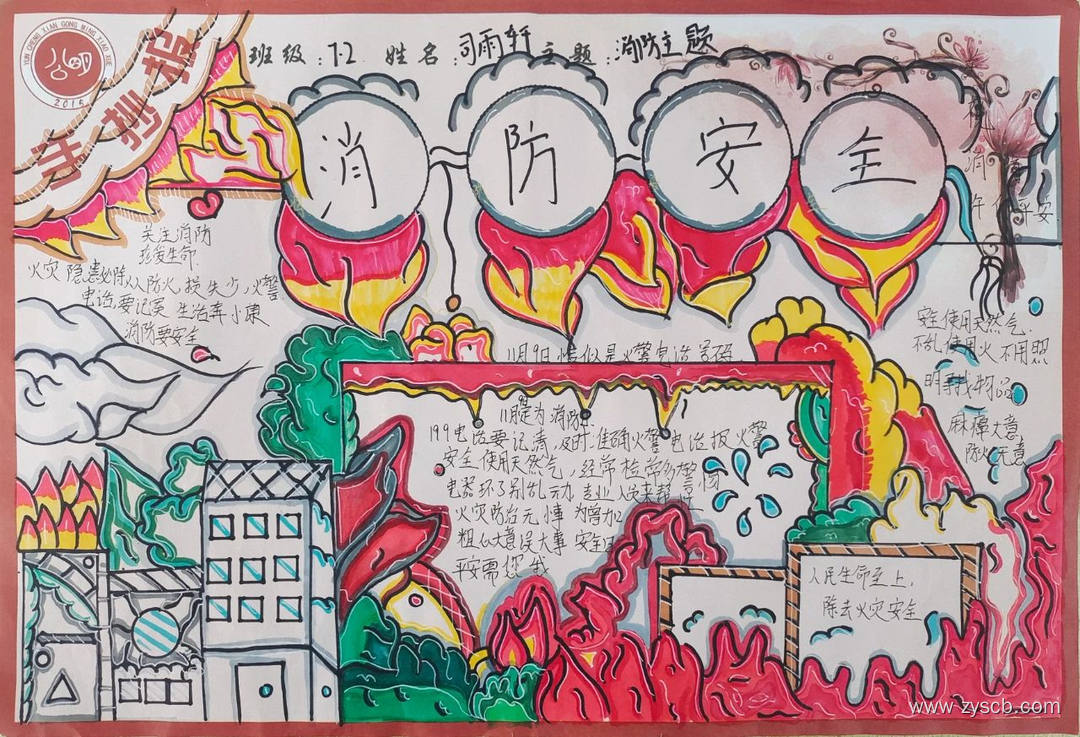 YUN CHENG XIAN GONG MING XIAO XUE
公明
2016
手抄报
班级:7.2 姓名:司雨轩 主题:消防主题
消防安全
关注消防
珍爱生命
火灾隐患必除人防火,损失少,火警
电话要记牢 生活奔小康
消防要安全
11月9日 是火警电话号码
11月 为消防
199电话要记清,及时准确火警电话报火警
安全使用天然气,经常检
电器坏了别乱动 专业人员来帮
火灾防治无 为增加
粗心大意误大事 安全
平安需您我
消
平安
安全使用天然气.
不乱使用火 不用照
明 物品
麻痹大意
人民生命至上,
除去火灾安全
www.zyscb.com